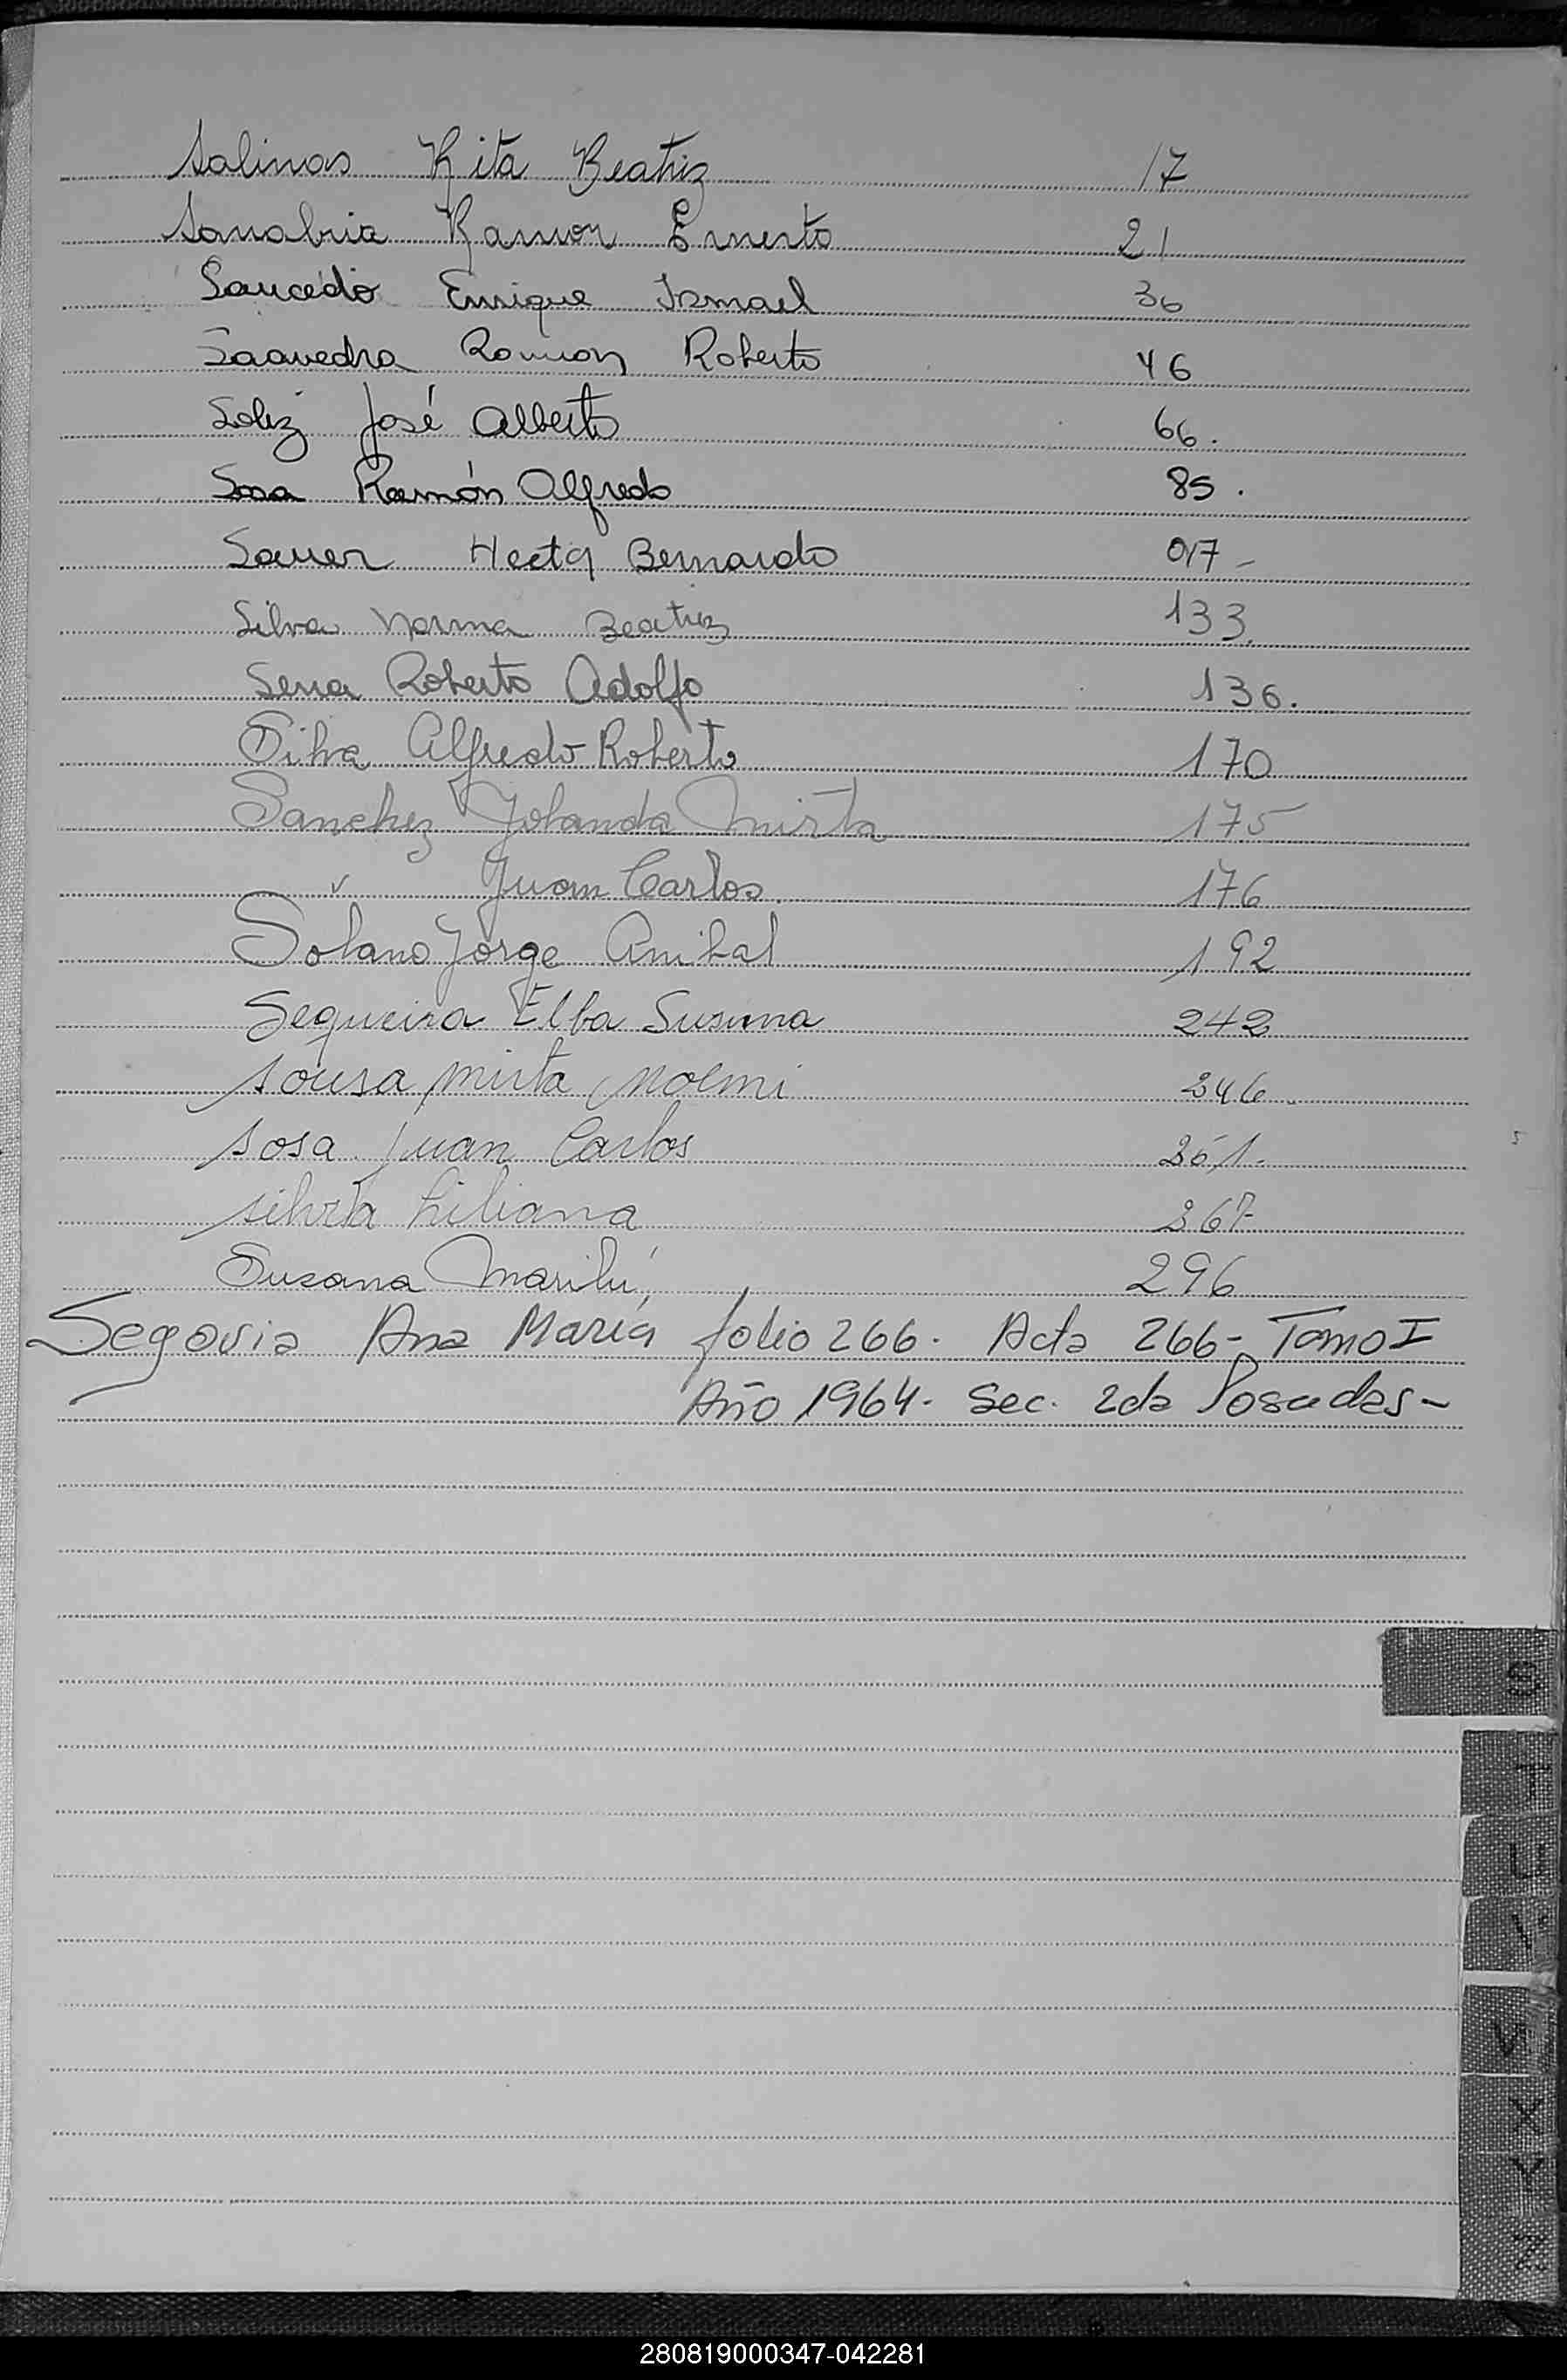 Salinas Rita Beatriz 17
Sanabria Ramon Ernesto 21
Saucedo Enrique Ismael 36
Saavedra Ramon Roberto 46
Soliz José Alberto 66.
Sosa Ramón Alfredo 85.
Sauer Hector Bernardo 97-
Silva Norma Beatriz 133.
Serra Roberto Adolfo 136.
Silva Alfredo Roberto 170
Sanchez Yolanda Mirta 175
" Juan Carlos 176
Solano Jorge Anibal 192
Sequeira Elba Susana 242
Sousa Mirta Noemi 246.
Sosa Juan Carlos 261-
Silvia Liliana 267
Susana Marilú 296
Segovia Ana Maria folio 266. Acta 266- Tomo I
Año 1964. Sec. 2da Posadas-
S
T
U
V
W
X
Y
Z
280819000347-042281